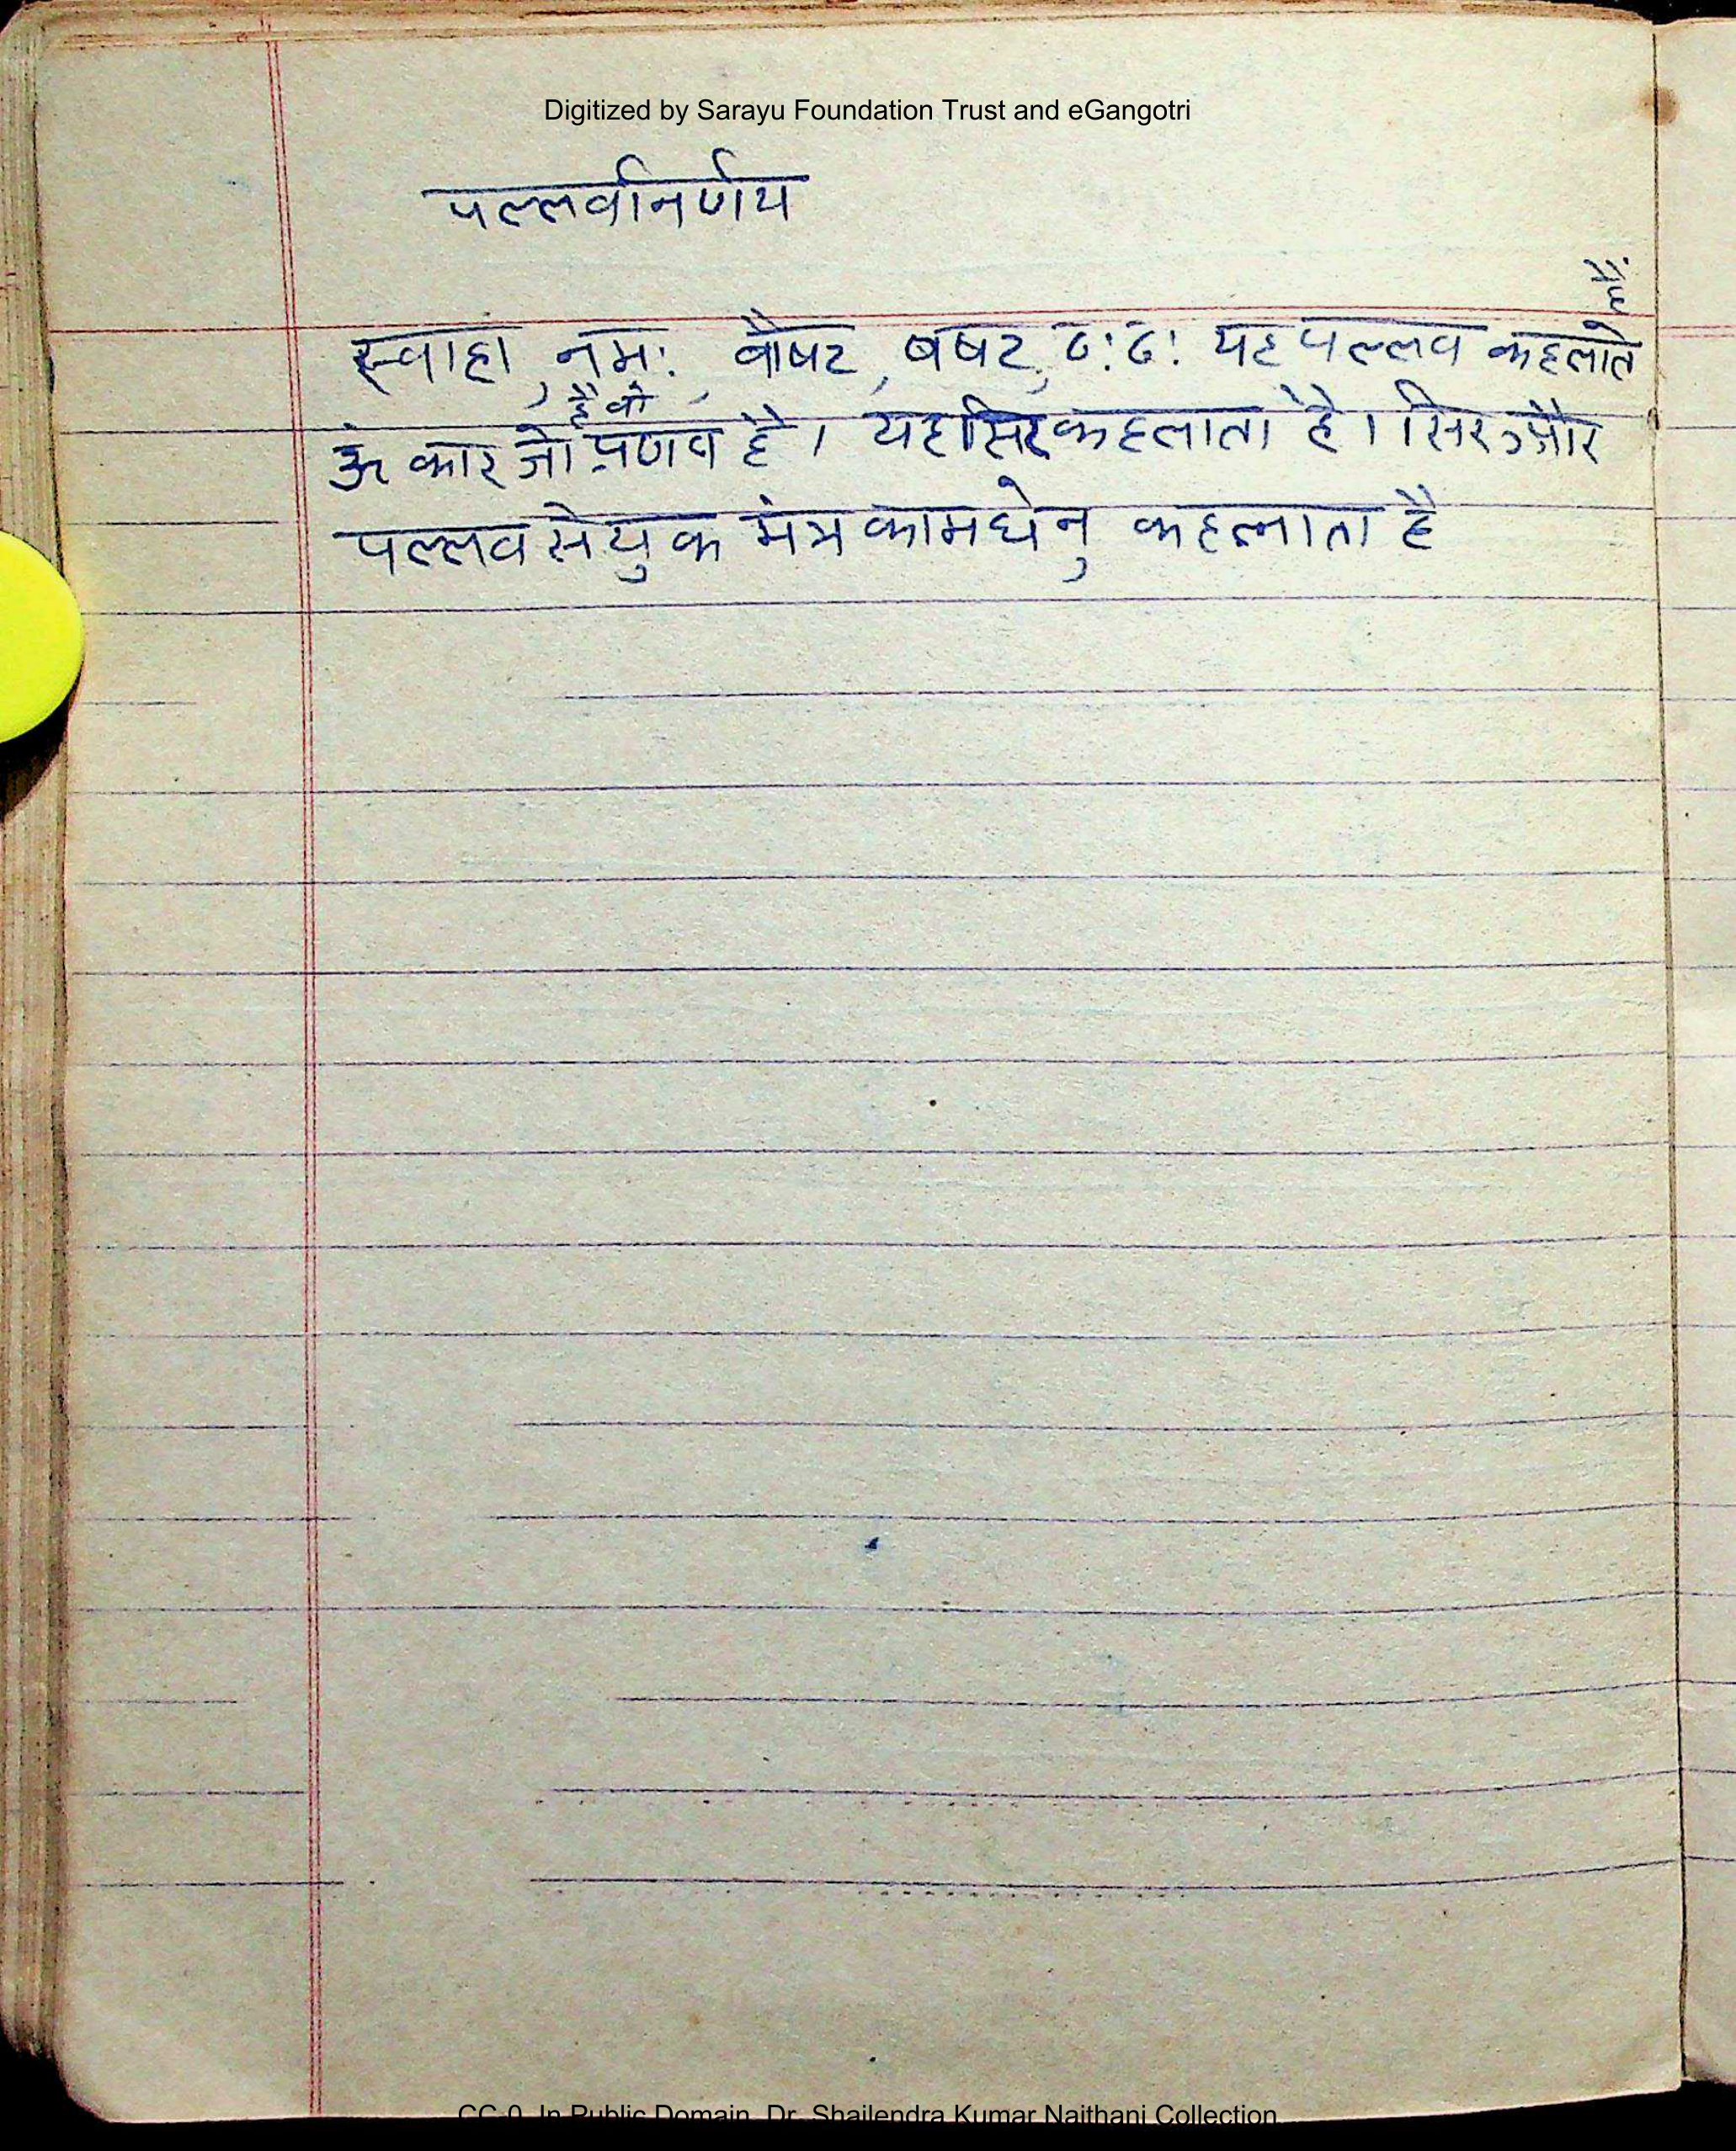 Digitized by Sarayu Foundation Trust and eGangotri
पल्लवनिर्णय
हैं
स्वाहा, नम:, बौषट, बषट, ठ:ठ: यह पल्लव कहलाते
है वो
ॐ कार जो प्रणव है। यह सिर कहलाता है। सिर और
पल्लव से युक मंत्र कामधेनु कहलाता है
CC-0. In Public Domain. Dr. Shailendra Kumar Naithani Collection